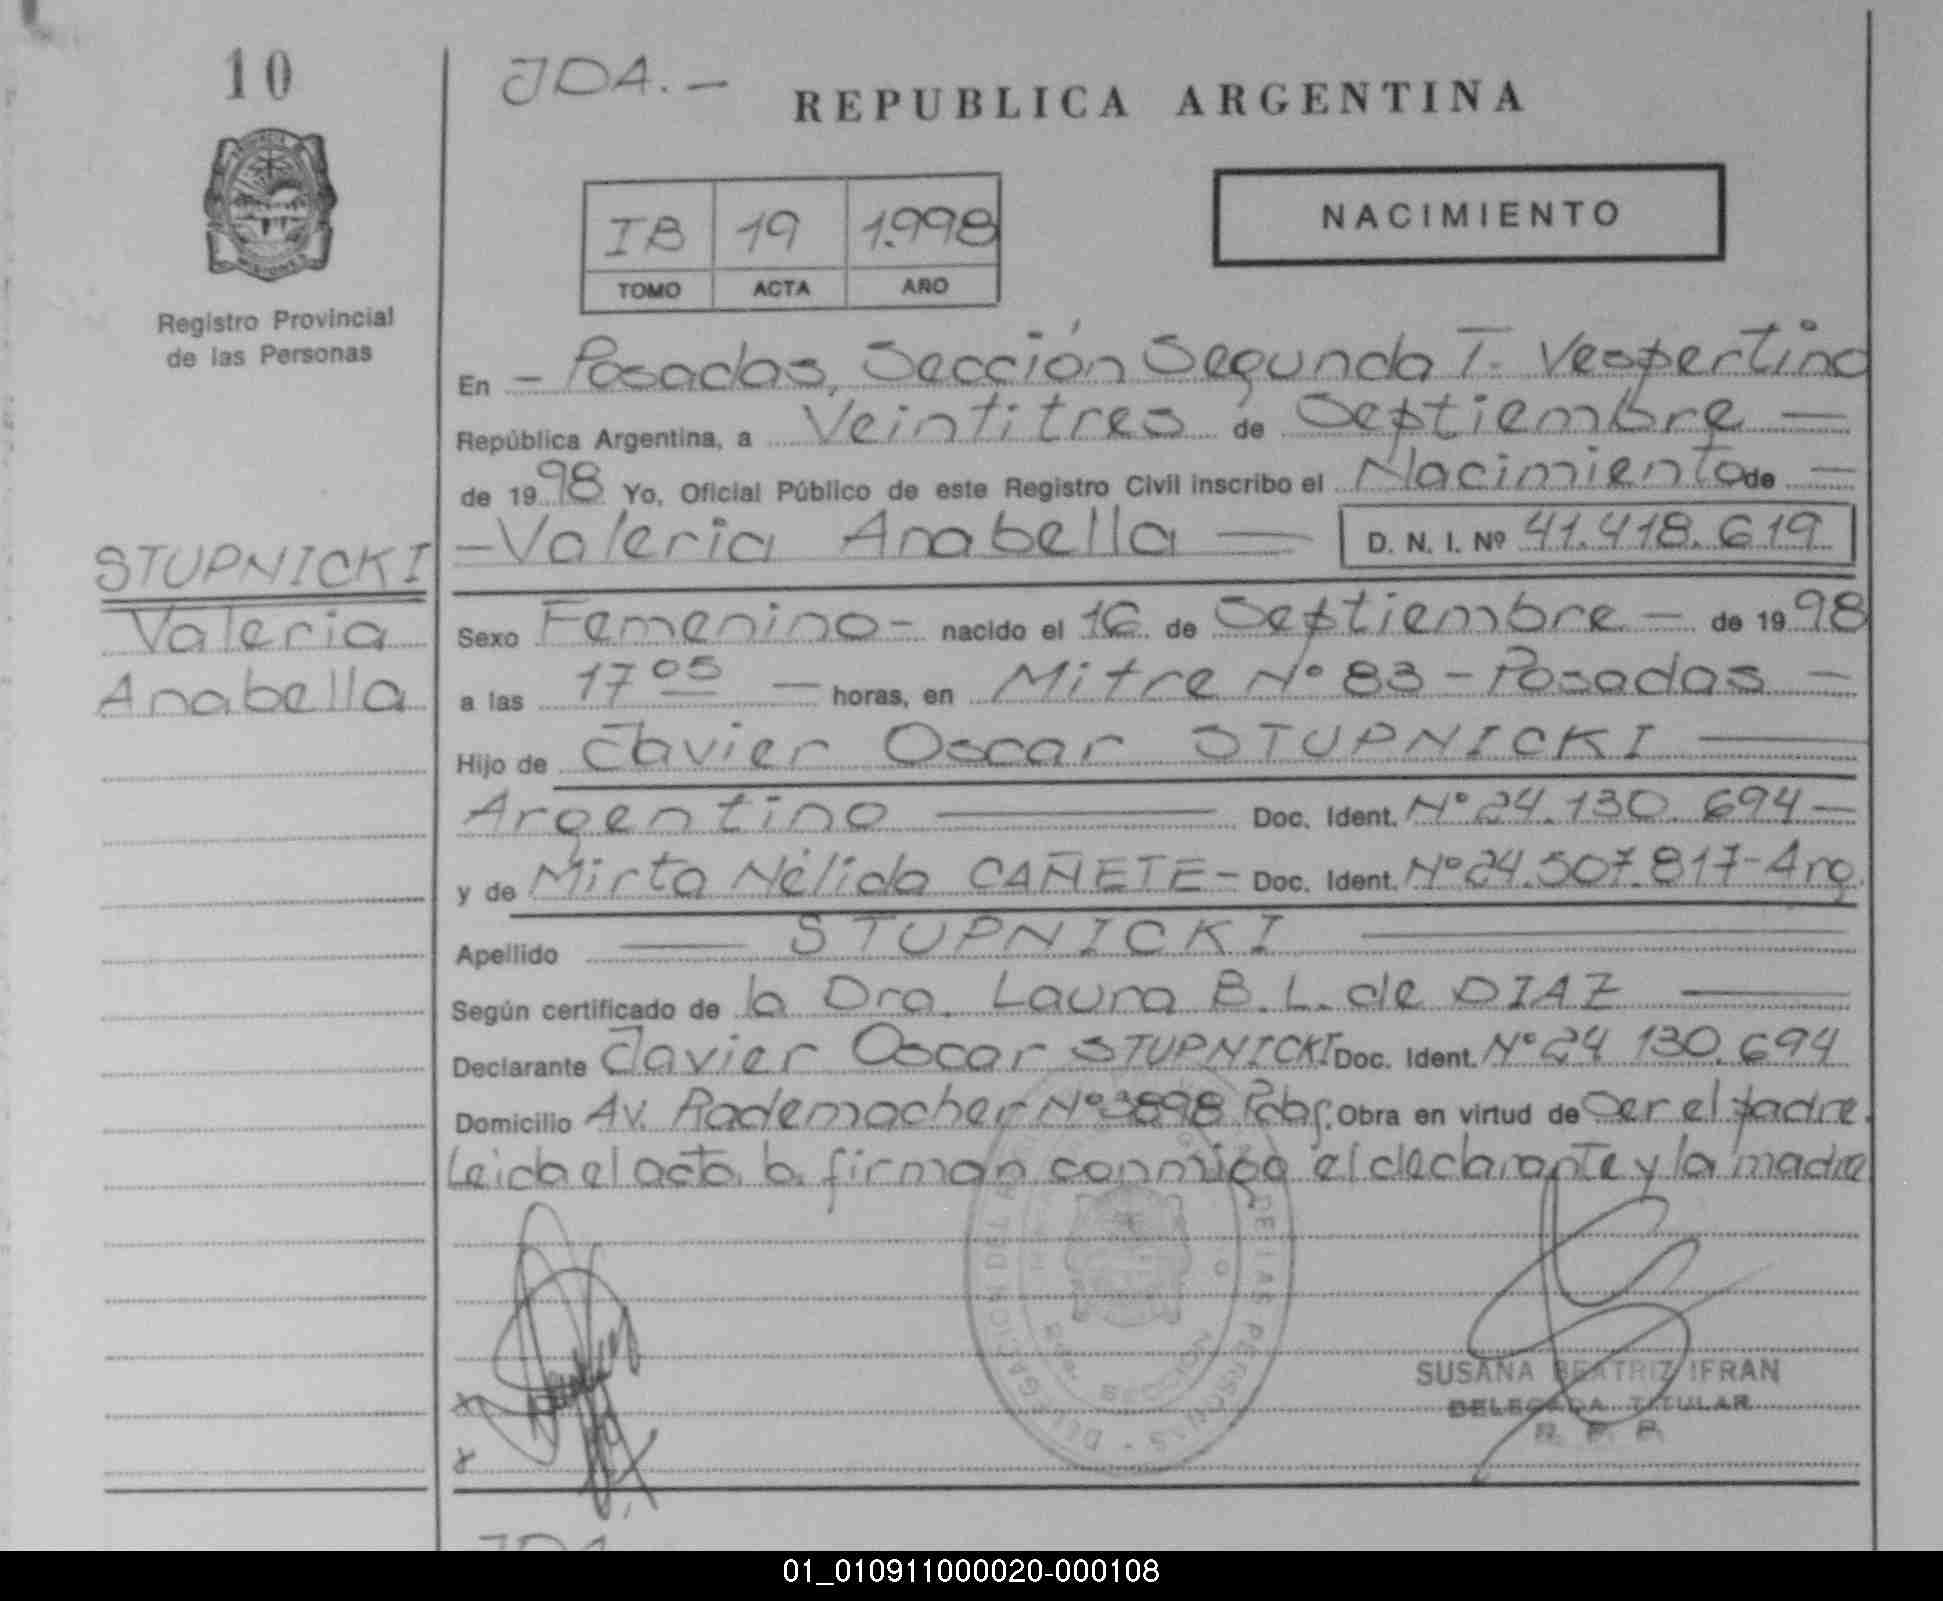 10
JDA. -
REPUBLICA ARGENTINA
IB 19 1.998
TOMO ACTA AÑO
NACIMIENTO
Registro Provincial
de las Personas
En - Posadas, Sección Segunda T. Vespertino
República Argentina, a Veintitres de Septiembre —
de 1998 Yo, Oficial Público de este Registro Civil inscribo el Nacimiento de —
- Valeria Anabella — D. N. I. Nº 41.418.619
STUPNICKI
Valeria
Anabella
Sexo Femenino - nacido el 16 de Septiembre - de 1998
a las 17 05 — horas, en Mitre Nº 83 - Posadas -
Hijo de Javier Oscar STUPNICKI —
Argentino — Doc. Ident. Nº 24.130.694 -
y de Mirta Nélida CAÑETE - Doc. Ident. Nº 24.507.817 - Arg.
Apellido — STUPNICKI —
Según certificado de la Dra. Laura B. L. de DIAZ —
Declarante Javier Oscar STUPNICKI Doc. Ident. Nº 24 130.694
Domicilio Av. Rademacher Nº 3898 Obra en virtud de ser el padre.
Leida el acta la firman conmigo el declarante y la madre
DELEGACION DEL DE LAS PERSONAS
SECCION
SUSANA BEATRIZ IFRAN
DELEGADA TITULAR
R. P. P.
JDA.
01_010911000020-000108